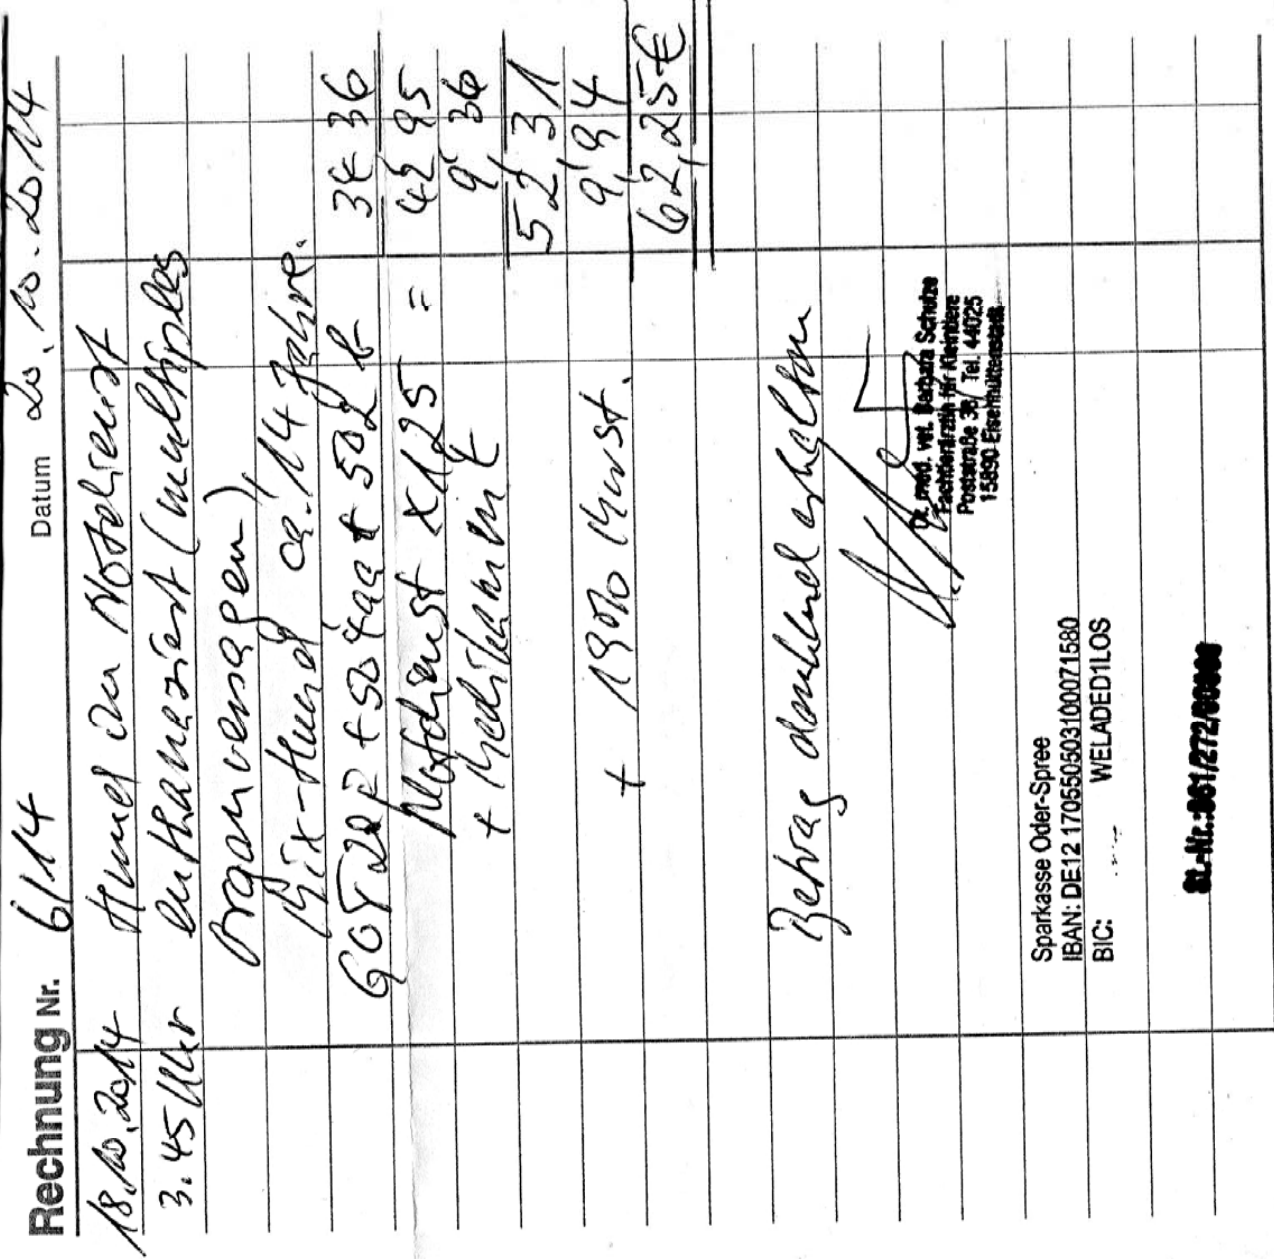 Rechnung Nr. 6/14
Datum 20.10.2014
18.10.2014 Hund im Notdienst
3.45 Uhr euthanasiert (multiples
Organversagen)
Mix-Hund ca. 14 Jahre.
GOT 34 36
Notdienst x 1,25 = 42 95
+ Medikamente 9, 36
52, 31
+ 19% Mwst. 9,94
62,25€
Betrag dankend erhalten
Dr. med. vet. Barbara Schulze
Fachtierärztin für Kleintiere
Poststraße 38/ Tel. 44025
15890 Eisenhüttenstadt
Sparkasse Oder-Spree
IBAN: DE12 170550503100071580
BIC: WELADED1LOS
St.-Nr.:061/272/